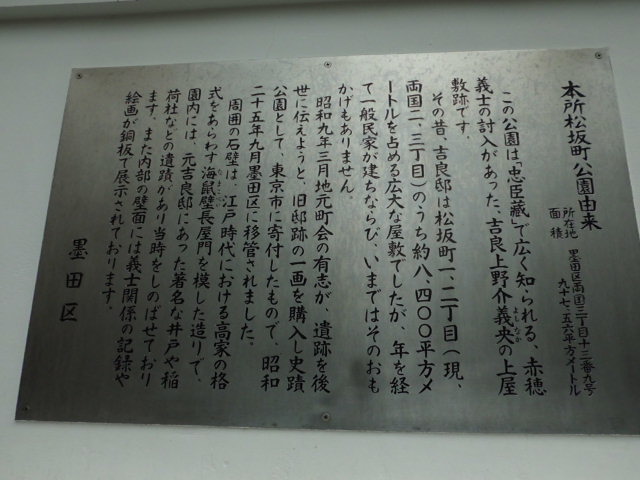 本所松坂町公園由来
所在地 墨田区両国三丁目十三番九号
面積 九十七・五六平方メートル
この公園は「忠臣蔵」で広く知られる、赤穂
義士の討入があった、吉良上野介義央の上屋
よしなか
敷跡です。
その昔、吉良邸は松坂町一、二丁目(現、
両国二、三丁目)のうち約八、四〇〇平方メ
ートルを占める広大な屋敷でしたが、年を経
て一般民家が建ちならび、いまではそのおも
かげもありません。
昭和九年三月地元町会の有志が、遺跡を後
世に伝えようと、旧邸跡の一画を購入し史蹟
公園として、東京市に寄付したもので、昭和
二十五年九月墨田区に移管されました。
周囲の石壁は、江戸時代における高家の格
式をあらわす海鼠壁長屋門を模した造りで、
なまこ
園内には、元吉良邸にあった著名な井戸や稲
荷社などの遺蹟があり当時をしのばせており
ます。また内部の壁面には義士関係の記録や
絵画が銅板で展示されております。
墨田区